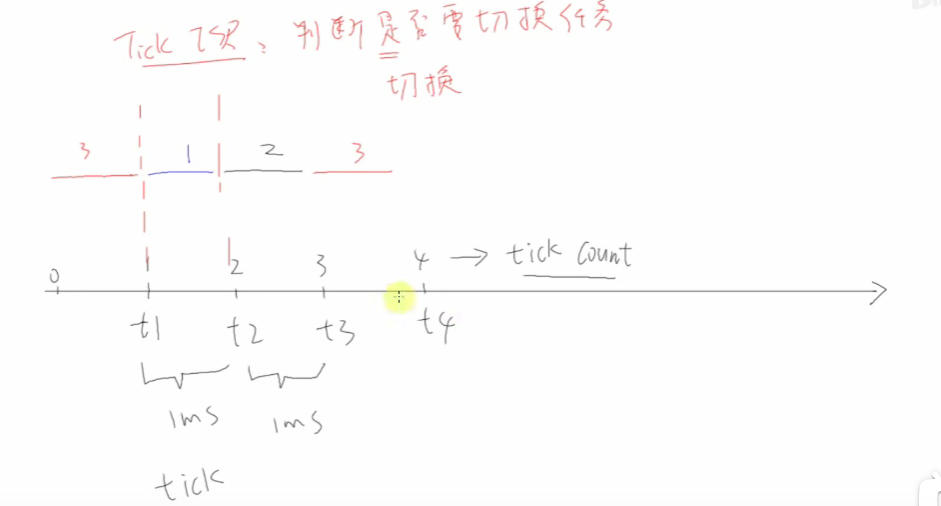 Tick ISR：判断是否需切换任务
切换
3 1 2 3
0 1 2 3 4 → tick count
t1 t2 t3 t4
1ms 1ms
tick